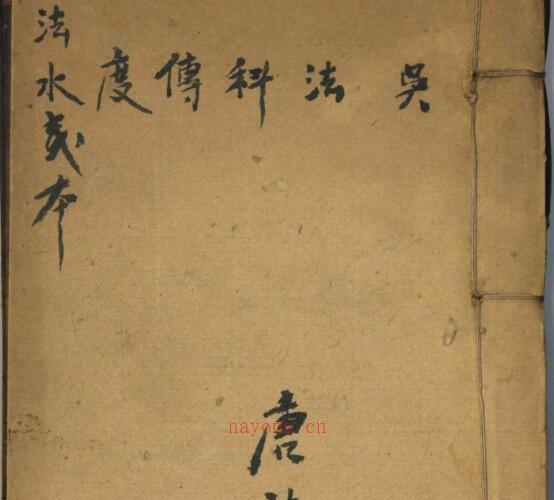 吳法科傳度
法水式本
唐
nayona.cn